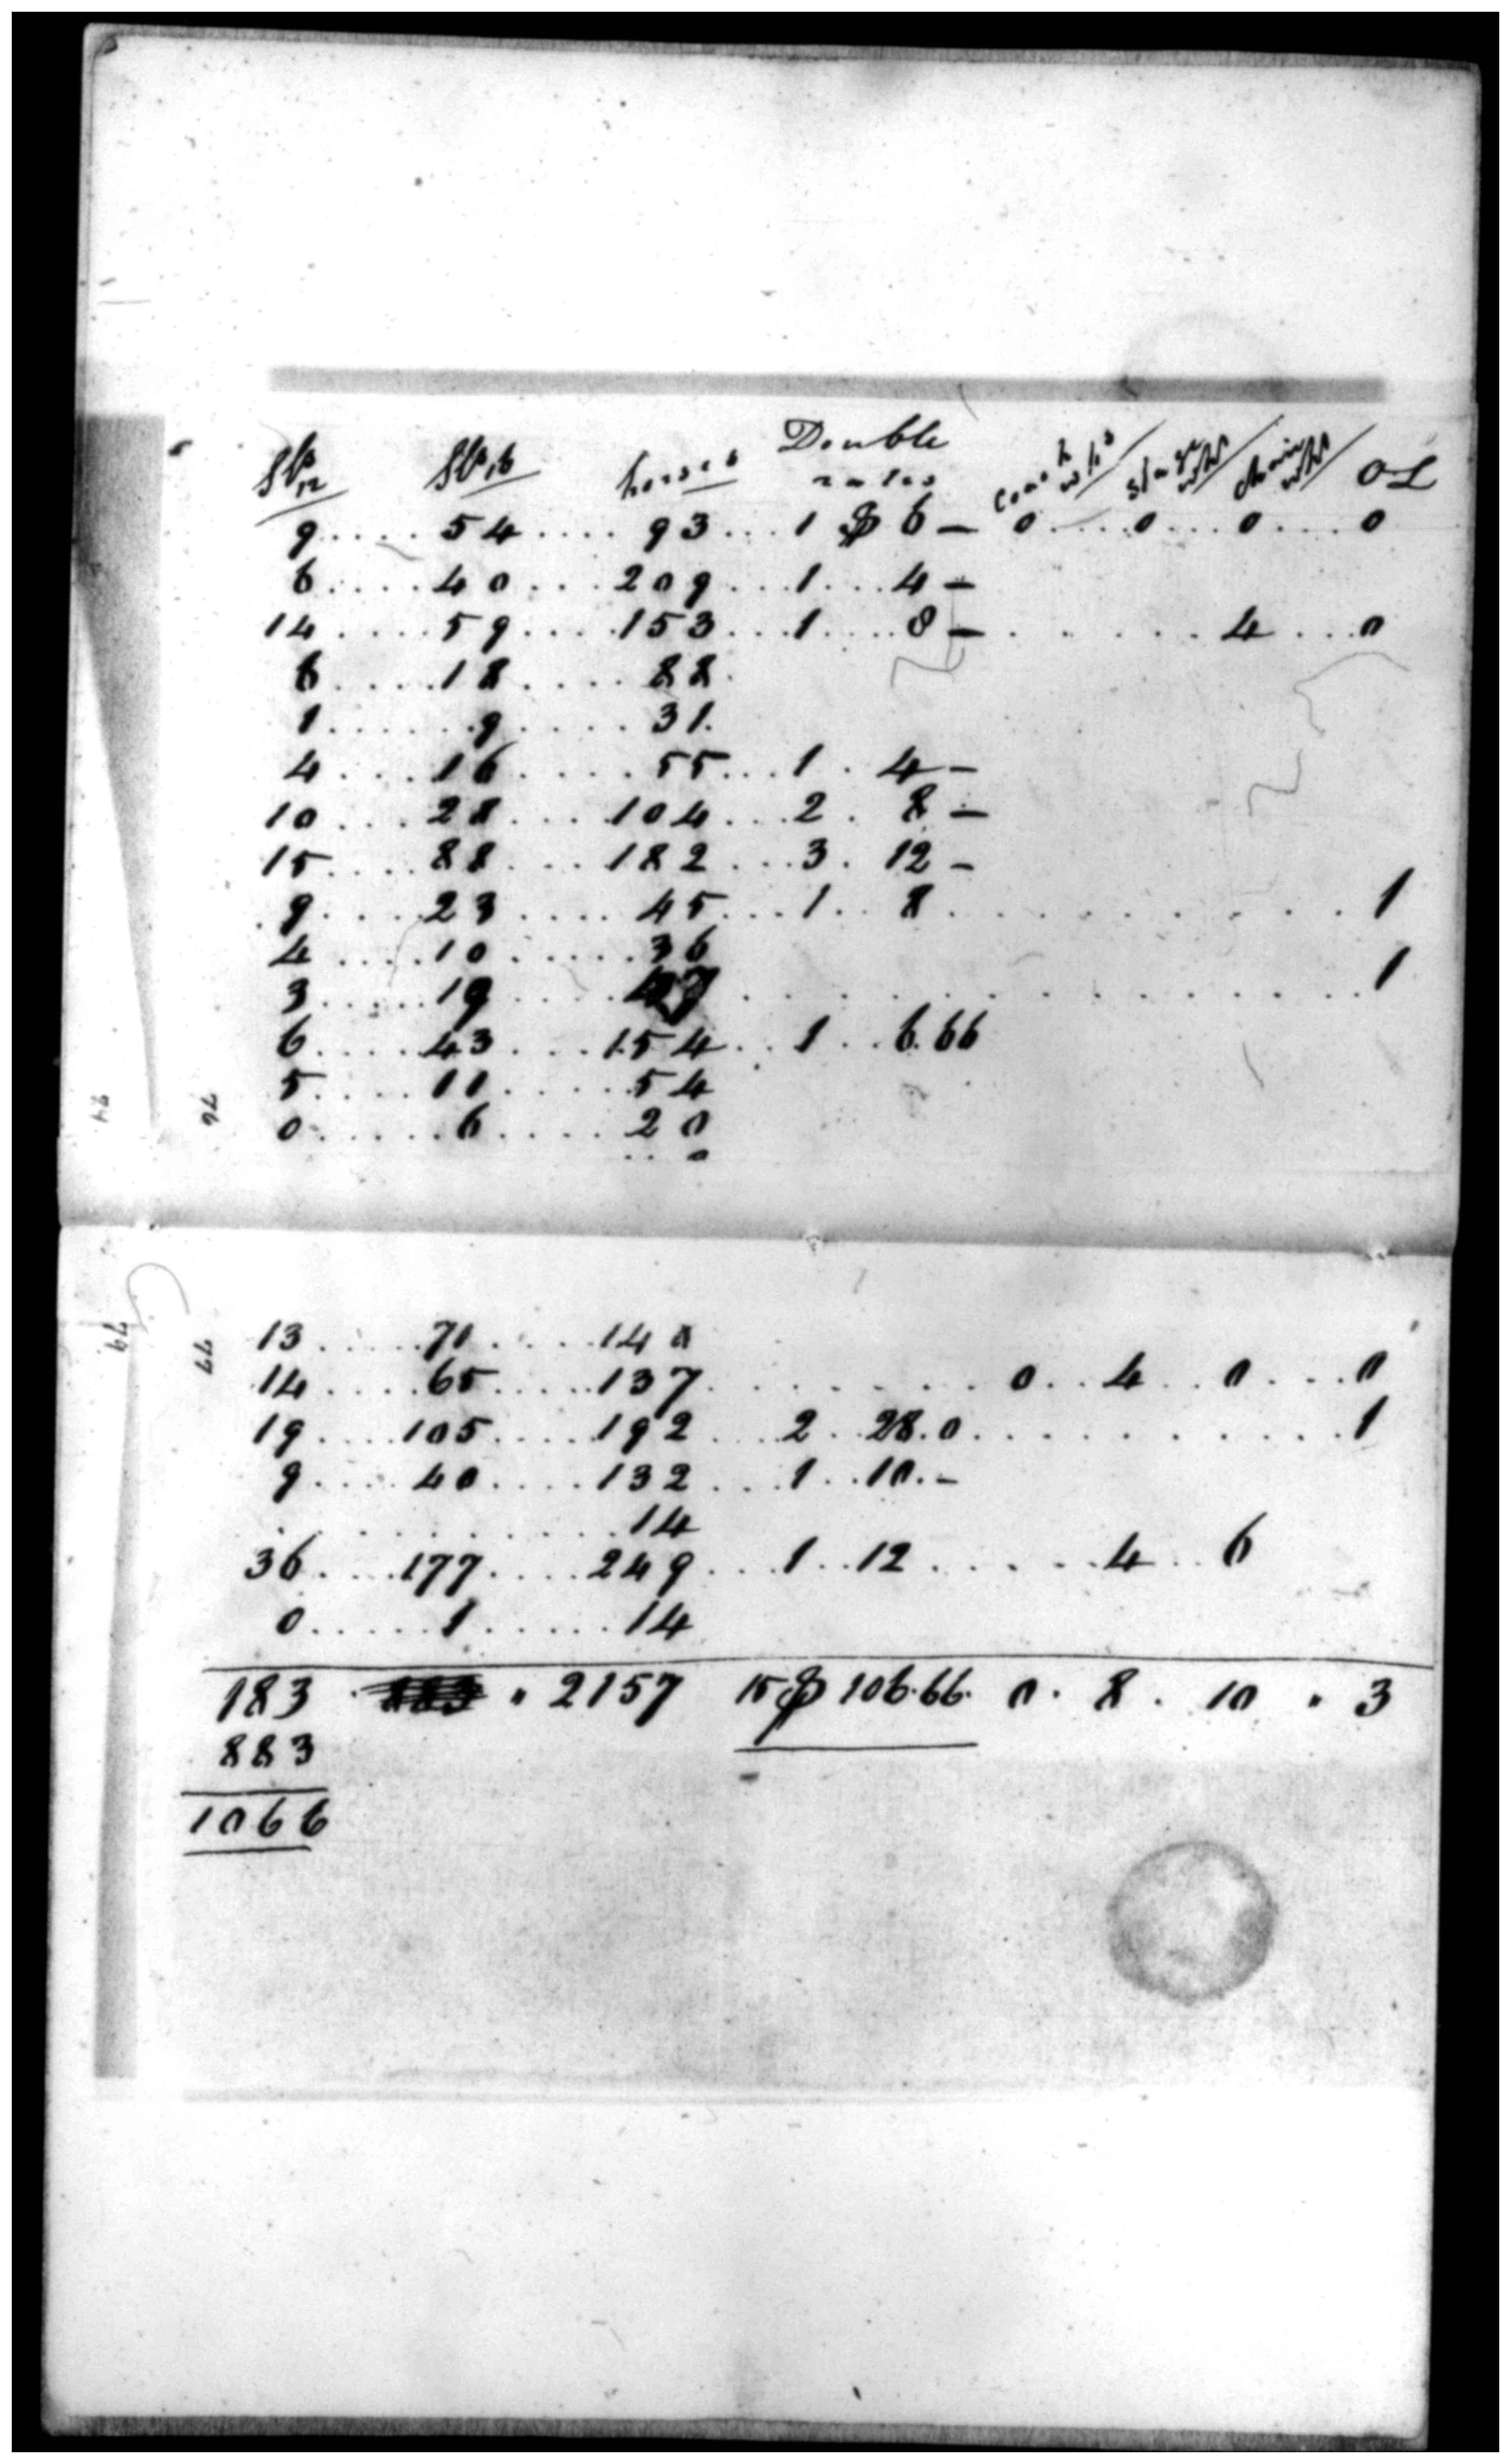 Double
Sla 12 Sla 16 horses rates coach whs / stage whs / chair whs / OL
9 .... 54 .... 93 ... 1 $ 6 — 0 .... 0 ... 0 .... 0
6 .... 40 ... 209 ... 1 ... 4 —
14 .... 59 .... 153 ... 1 .... 8 — . . . . . 4 ... 0
6 .... 18 .... 88.
1 ...... 9 ..... 31.
4 ... 16 ..... 55 ... 1 . 4 —
10 ... 28 ... 104 ... 2 . 8 —
15 .... 88 ... 182 ... 3 . 12 —
9 .... 23 .... 45 ... 1 .. 8 . . . . . . . . . 1
4 .... 10 ...... 36
3 ..... 19 .... . . . . . . . . . . . . 1
6 .... 43 ... 154 .. 1 .. 6.66
5 .... 11 ..... 54
0 ..... 6 .... 20
.. 0
76
77
79
13 ..... 71 ..... 140
14 .... 65 .... 137 . . . . . . . 0 .. 4 .. 0 ... 0
19 .... 105 .... 192 ... 2 .. 28.0 . . . . . . . . . 1
9 .... 40 .... 132 ... 1 .. 10. —
. . . . . . . . . . 14
36 ... 177 .... 249 ... 1 .. 12 . . . . 4 .. 6
0 ..... 1 ..... 14
183 . 883 . 2157 15 $ 106.66. 0 . 8 . 10 . 3
883
1066